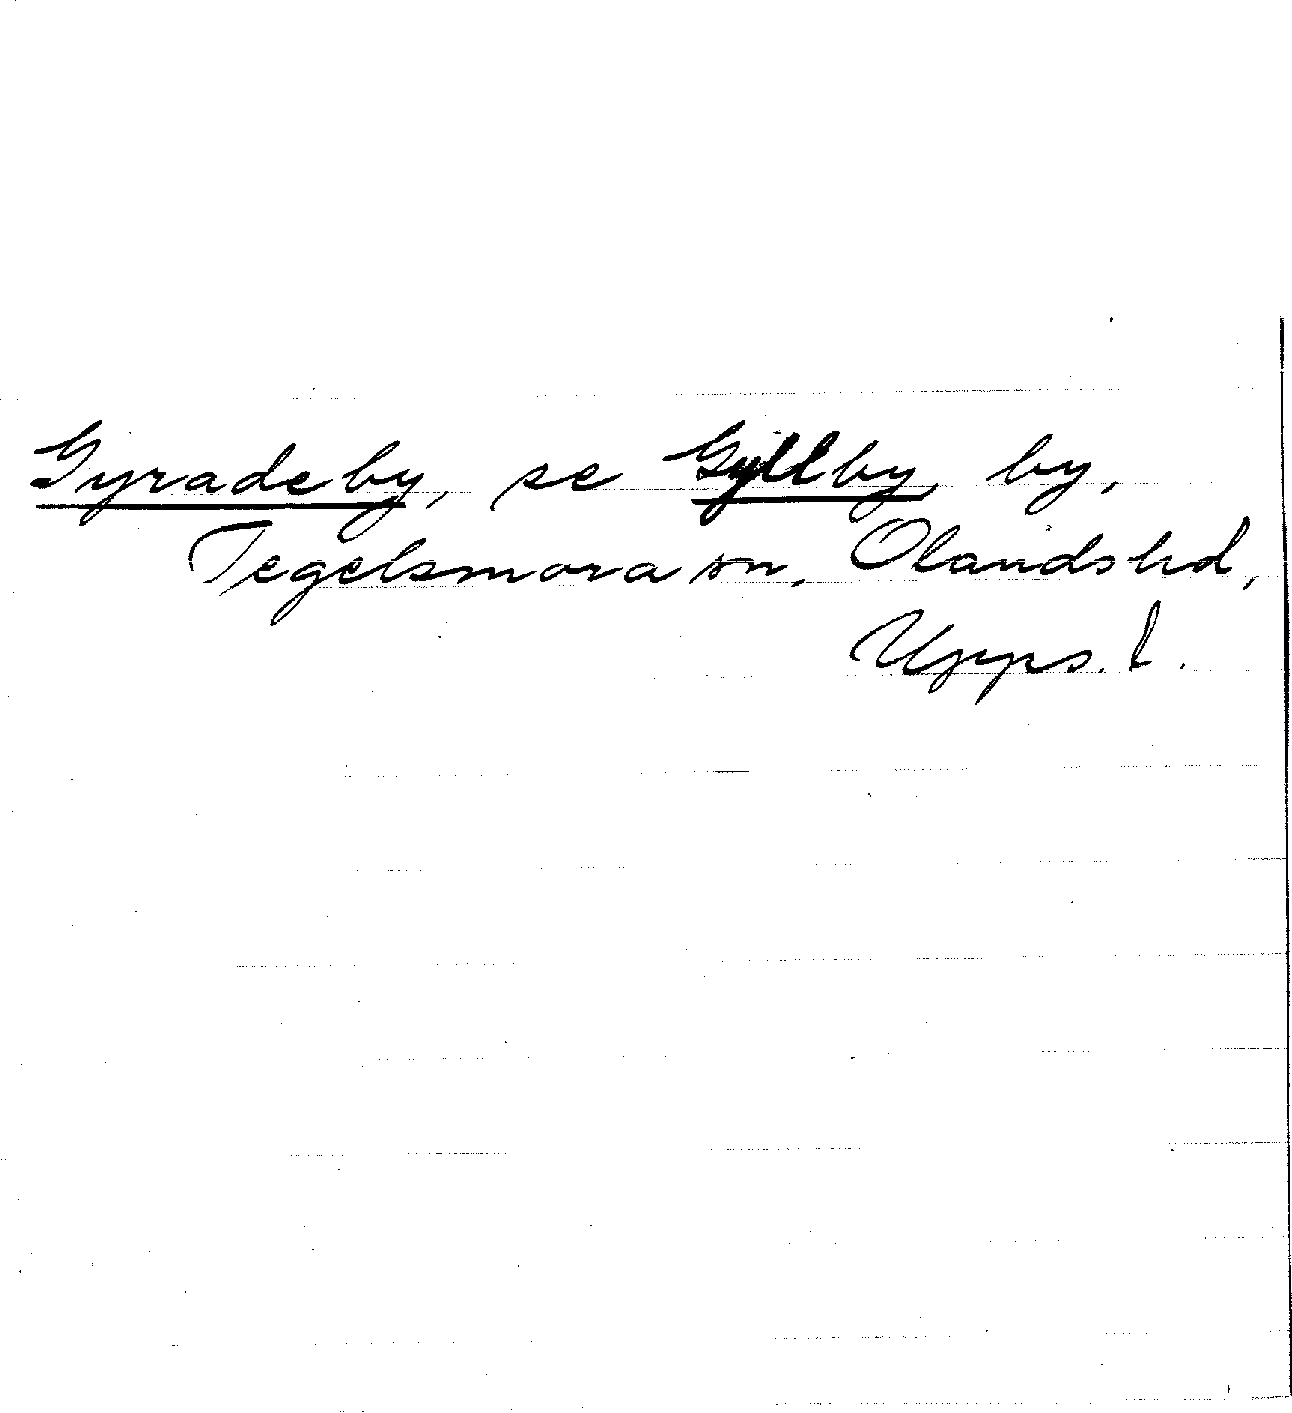 Gyradeby, se Gyllby, by,
Tegelsmora sn, Olands hd,
Upps. l.